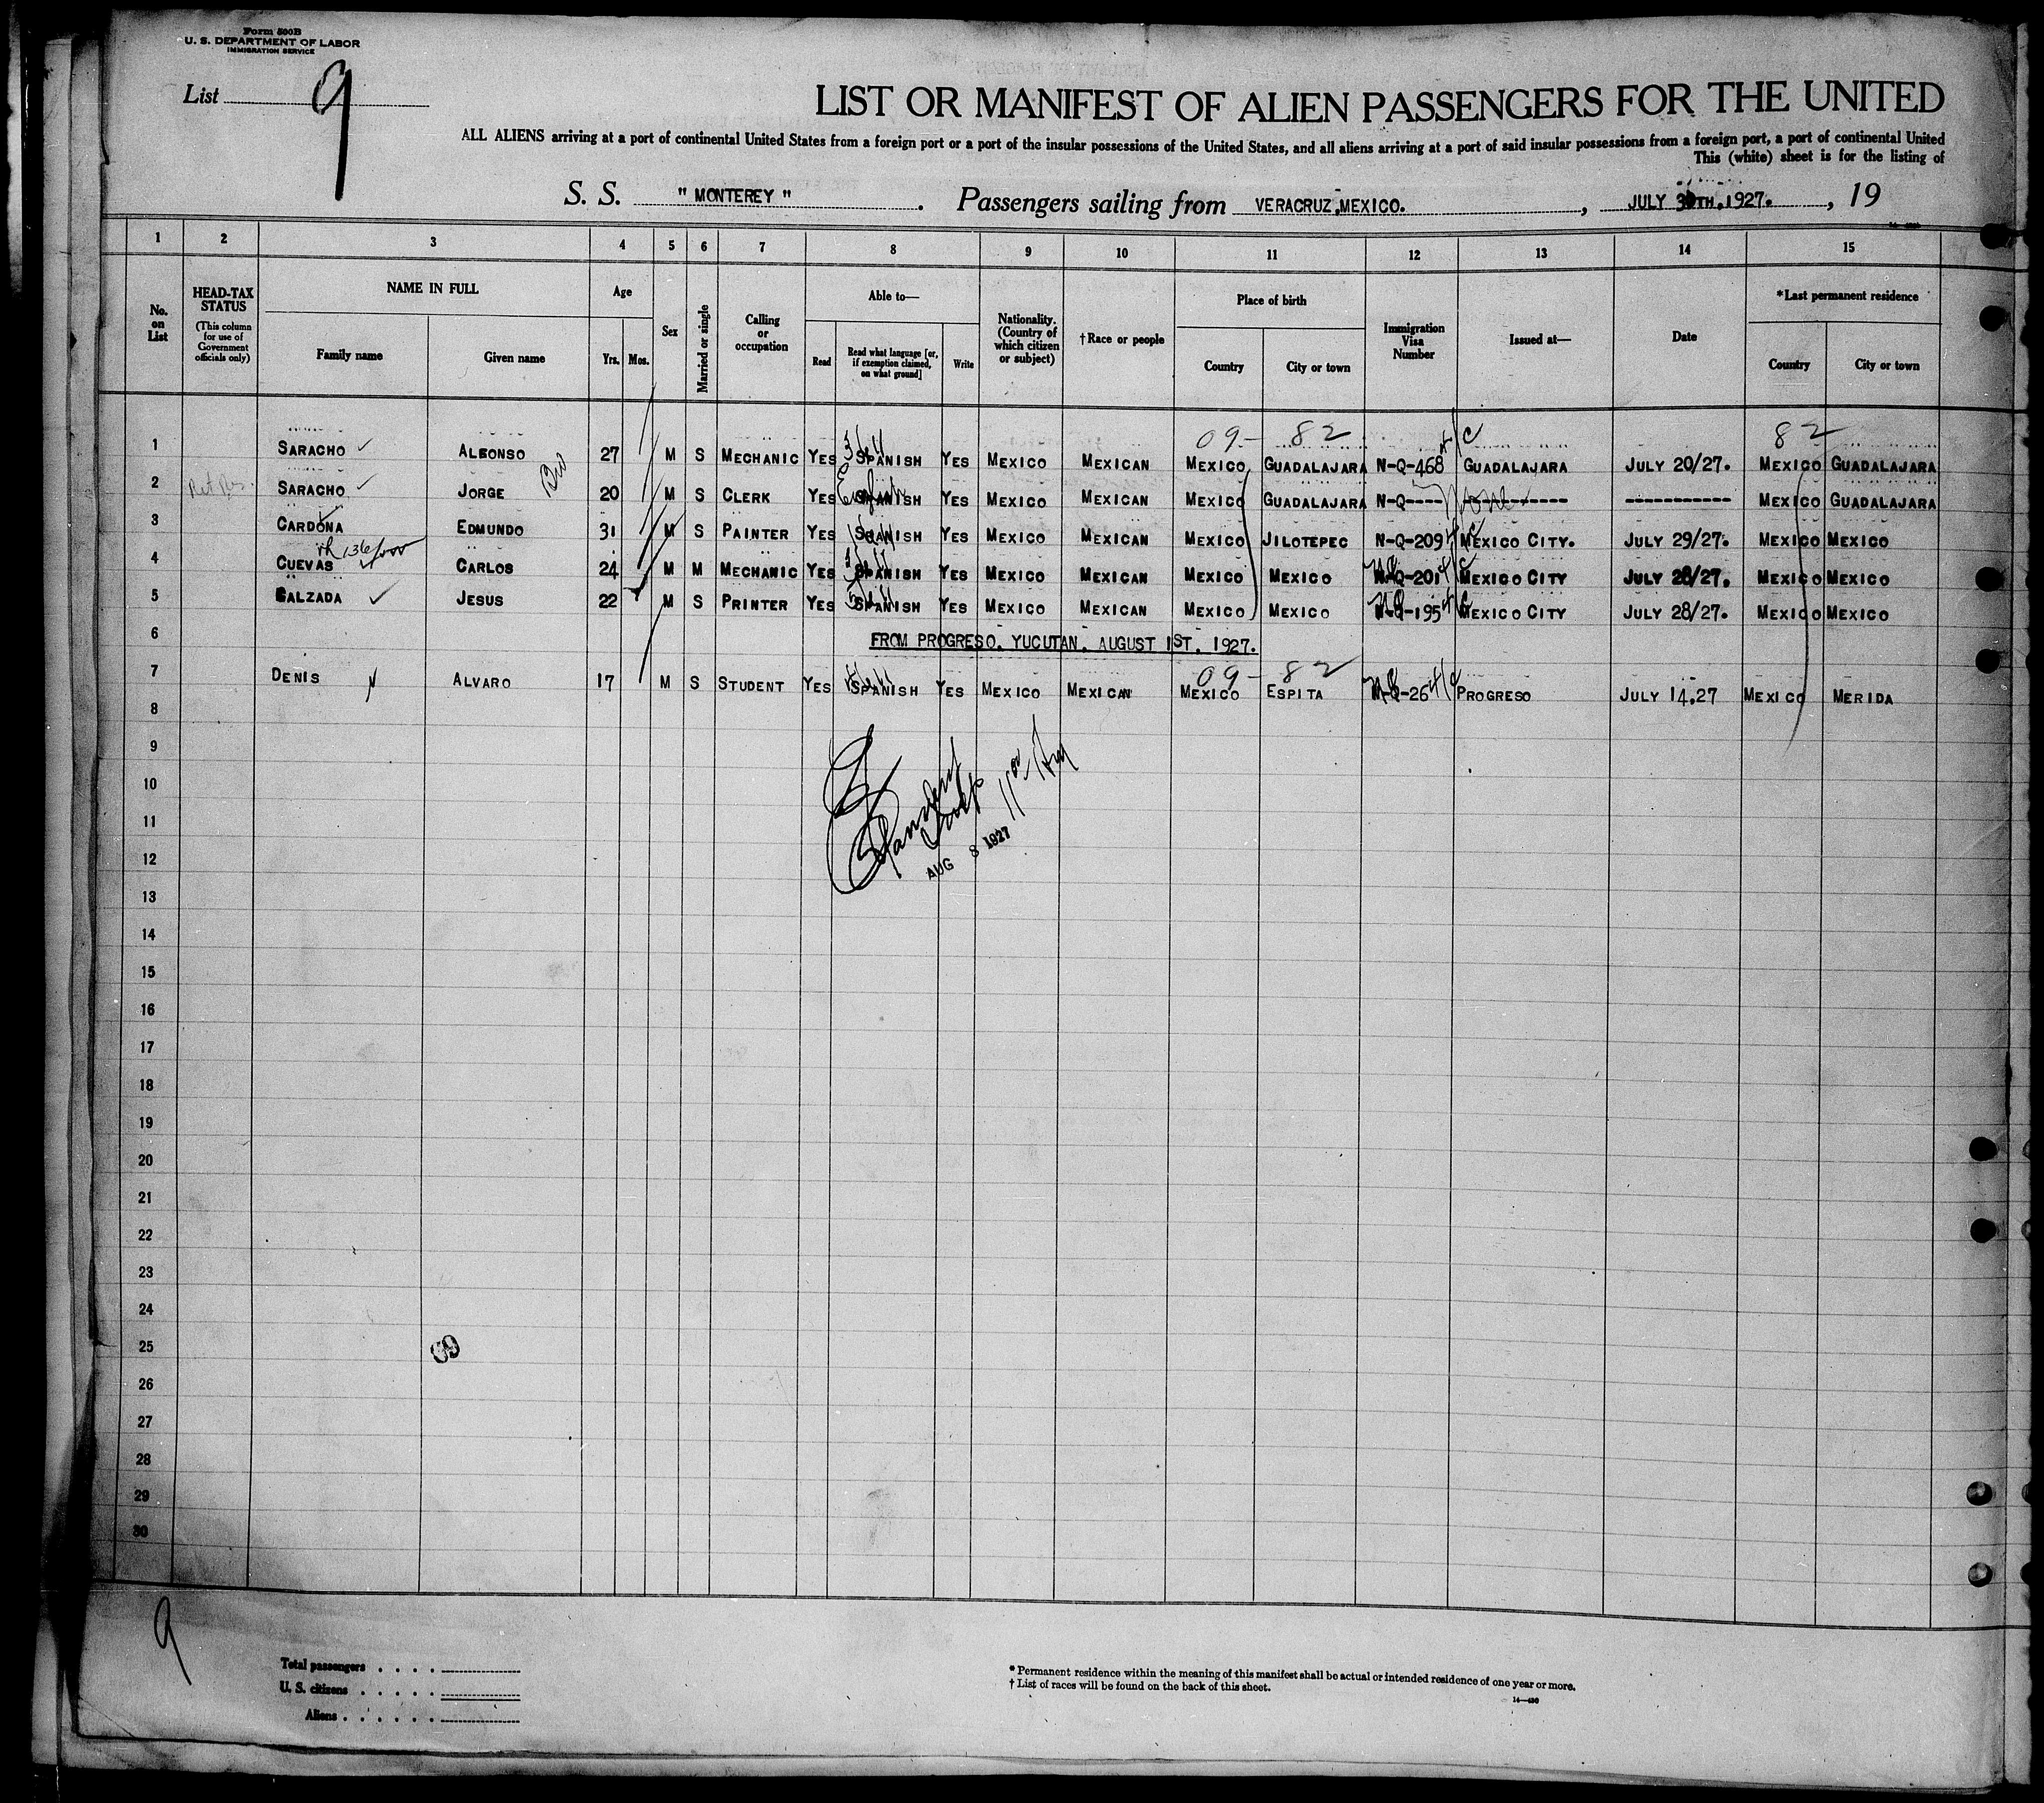 Form 500B
U. S. DEPARTMENT OF LABOR
IMMIGRATION SERVICE
List 9
LIST OR MANIFEST OF ALIEN PASSENGERS FOR THE UNITED
ALL ALIENS arriving at a port of continental United States from a foreign port or a port of the insular possessions of the United States, and all aliens arriving at a port of said insular possessions from a foreign port, a port of continental United
This (white) sheet is for the listing of
S. S. "MONTEREY". Passengers sailing from VERACRUZ, MEXICO., JULY 30TH, 1927., 19
1 2 3 4 5 6 7 8 9 10 11 12 13 14 15
No. on List
HEAD-TAX STATUS (This column for use of Government officials only)
NAME IN FULL
Family name
Given name
Age
Yrs. Mos.
Sex
Married or single
Calling or occupation
Able to—
Read
Read what language [or, if exemption claimed, on what ground]
Write
Nationality. (Country of which citizen or subject)
†Race or people
Place of birth
Country
City or town
Immigration Visa Number
Issued at—
Date
*Last permanent residence
Country
City or town
09- 82 82
1 SARACHO ALFONSO 27 M S MECHANIC YES SPANISH YES MEXICO MEXICAN MEXICO GUADALAJARA N-Q-468 GUADALAJARA JULY 20/27. MEXICO GUADALAJARA
2 SARACHO JORGE Bro 20 M S CLERK YES SPANISH English YES MEXICO MEXICAN MEXICO GUADALAJARA N-Q---- None ---------- ----------- MEXICO GUADALAJARA
3 CARDONA EDMUNDO 31 M S PAINTER YES SPANISH YES MEXICO MEXICAN MEXICO JILOTEPEC N-Q-209 MEXICO CITY. JULY 29/27. MEXICO MEXICO
4 CUEVAS CARLOS 24 M M MECHANIC YES SPANISH YES MEXICO MEXICAN MEXICO MEXICO N-Q-201 MEXICO CITY JULY 28/27. MEXICO MEXICO
5 CALZADA JESUS 22 M S PRINTER YES SPANISH YES MEXICO MEXICAN MEXICO MEXICO N-Q-195 MEXICO CITY JULY 28/27. MEXICO MEXICO
6 FROM PROGRESO, YUCUTAN, AUGUST 1ST, 1927.
09- 82
7 DENIS ALVARO 17 M S STUDENT YES SPANISH YES MEXICO MEXICAN MEXICO ESPITA N-Q-26 PROGRESO JULY 14.27 MEXICO MERIDA
8
9
10
11
12
AUG 8 1927
13
14
15
16
17
18
19
20
21
22
23
24
25
26
27
28
29
30
9
Total passengers
U. S. citizens
Aliens
* Permanent residence within the meaning of this manifest shall be actual or intended residence of one year or more.
† List of races will be found on the back of this sheet.